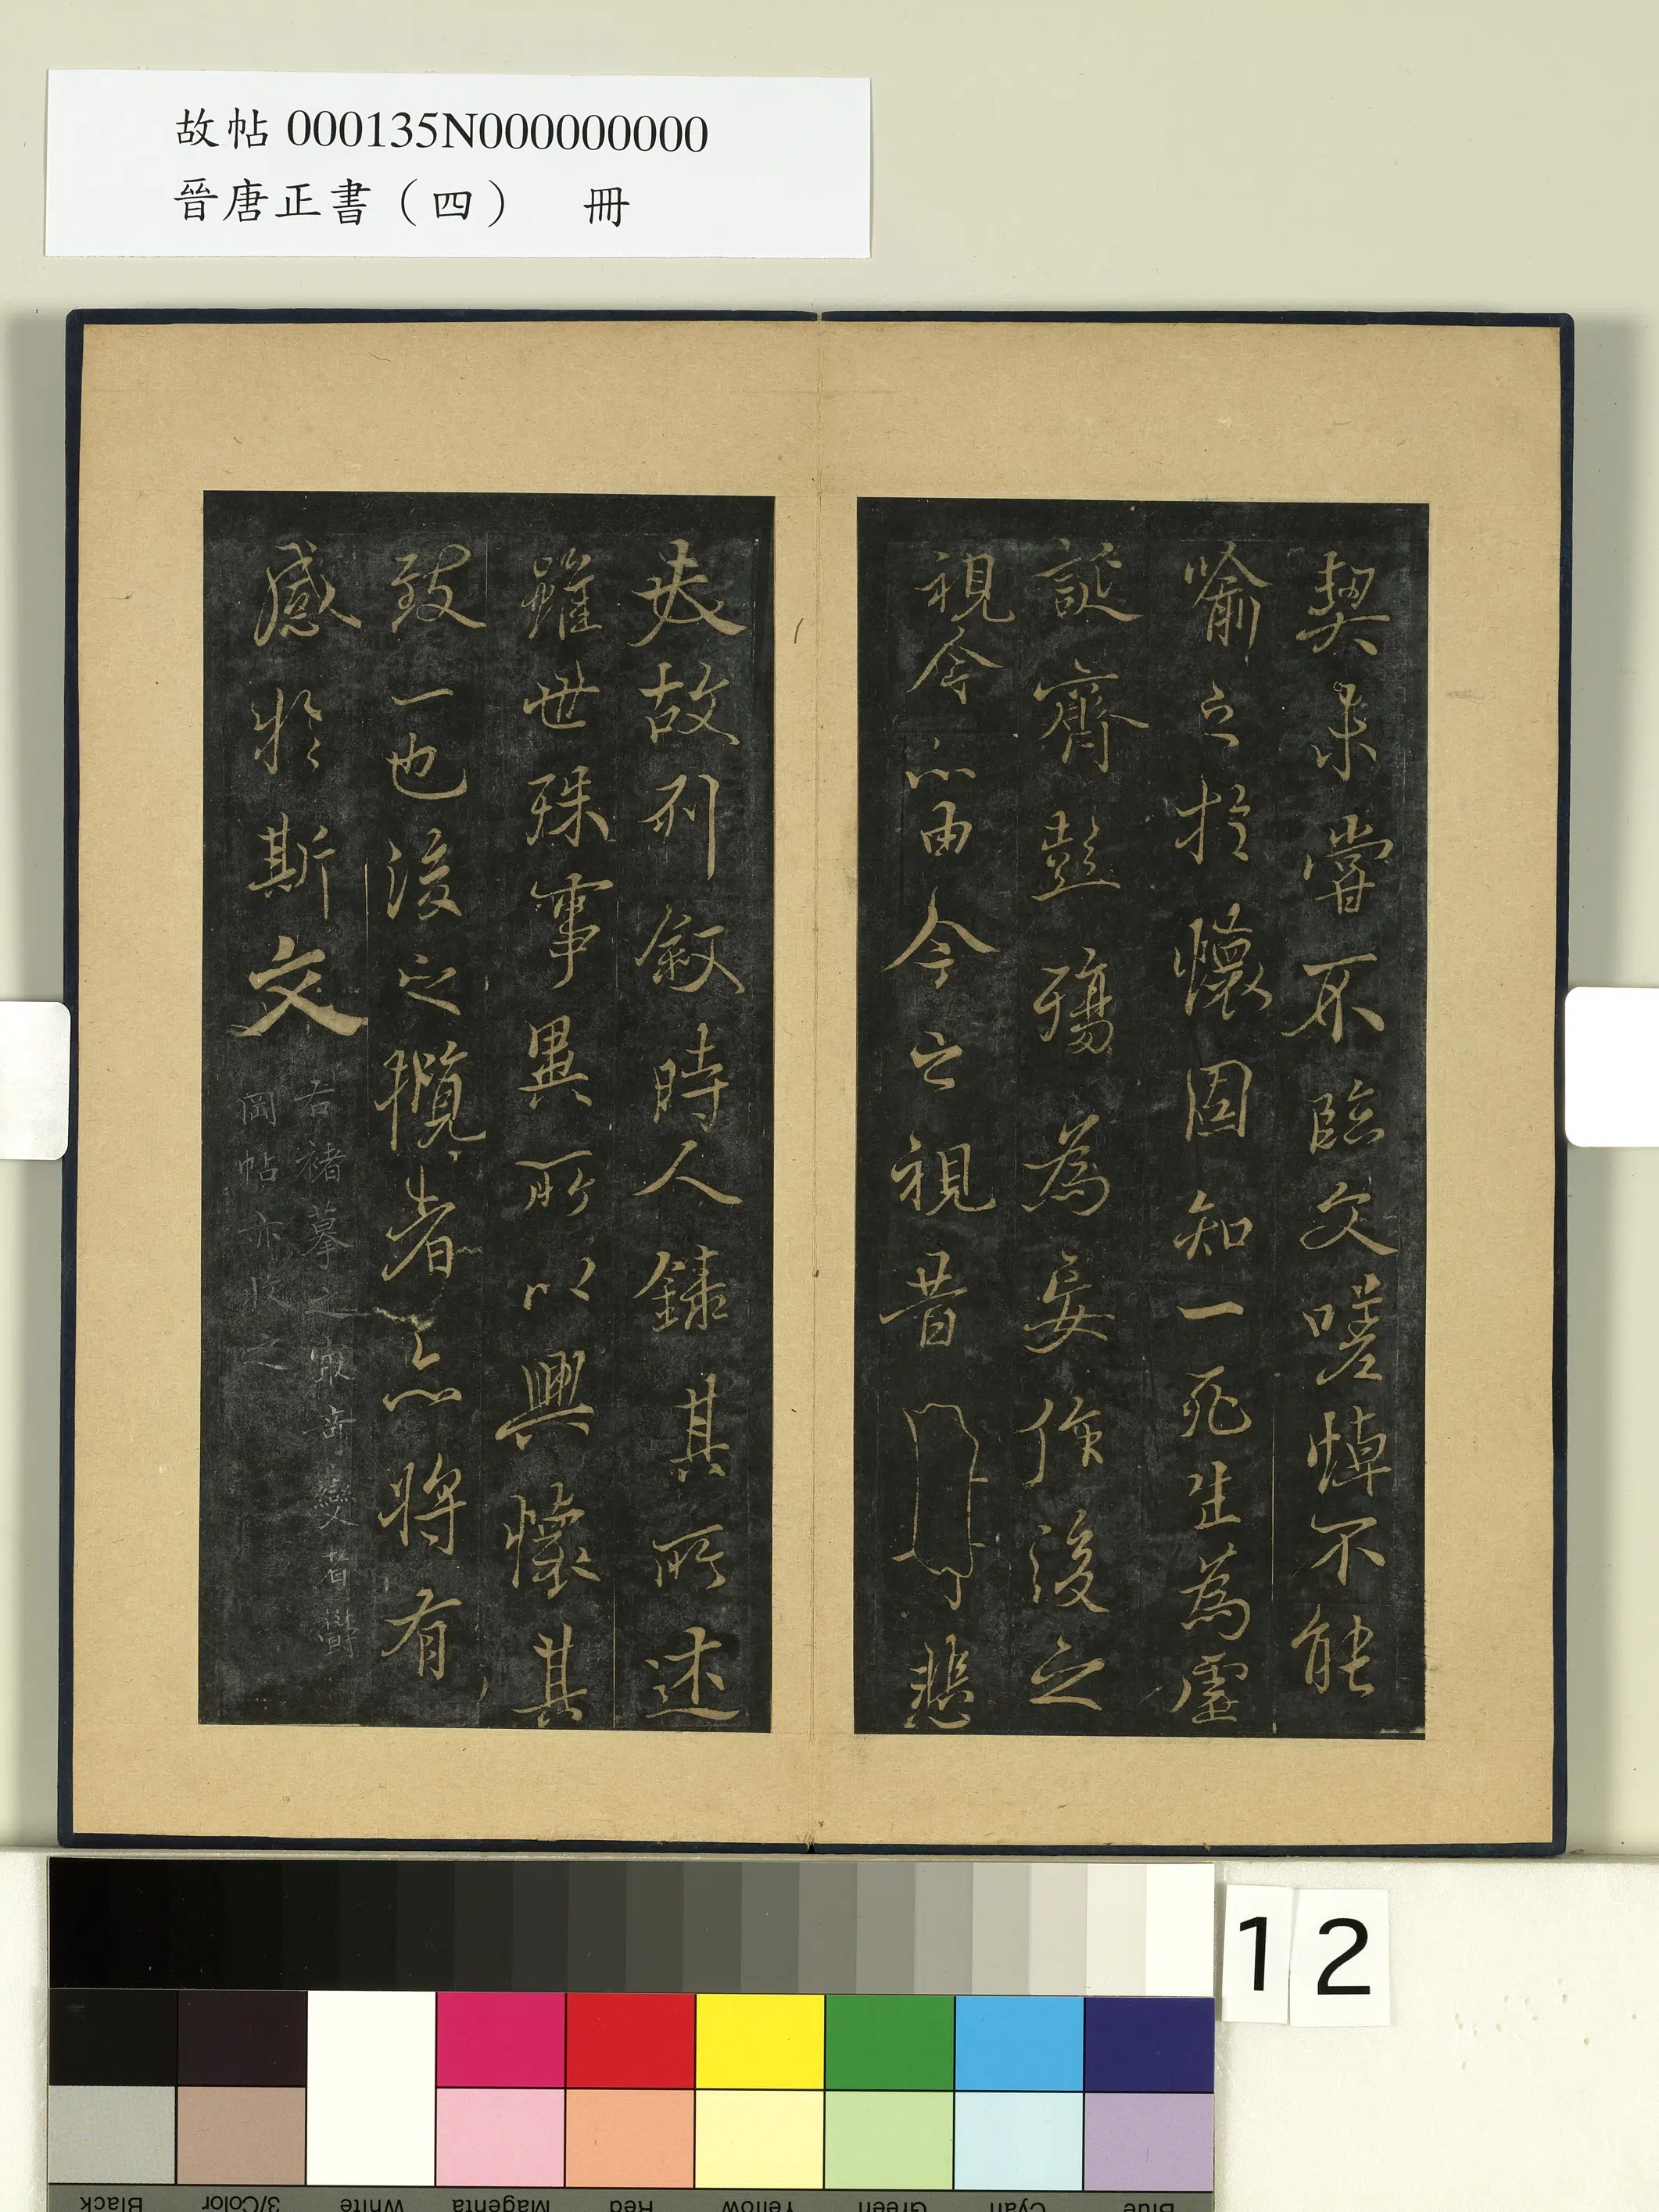 故帖 000135N000000000
晉唐正書（四） 冊
契未嘗不臨文嗟悼不能
喻之於懷固知一死生為虛
誕齊彭殤為妄作後之
視今亦由今之視昔 悲
夫故列敘時人錄其所述
雖世殊事異所以興懷其
致一也後之攬者亦將有
感於斯文
右褚摹之最奇變者鬱
岡帖亦收之
12
Black 3/Color White Magenta Red Yellow Green Cyan Blue